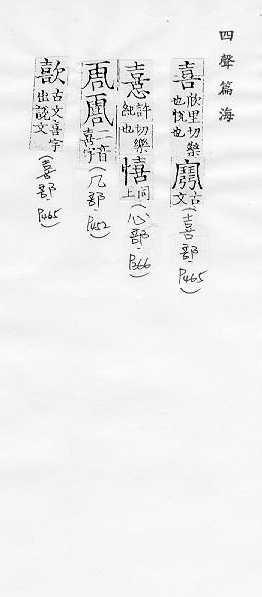 四聲篇海
喜欣里切樂也悅也 古文(喜部P465)
憙許切樂純也 憘同上(心部P366)
二音喜字(几部P452)
歖古文喜字出說文(喜部P465)